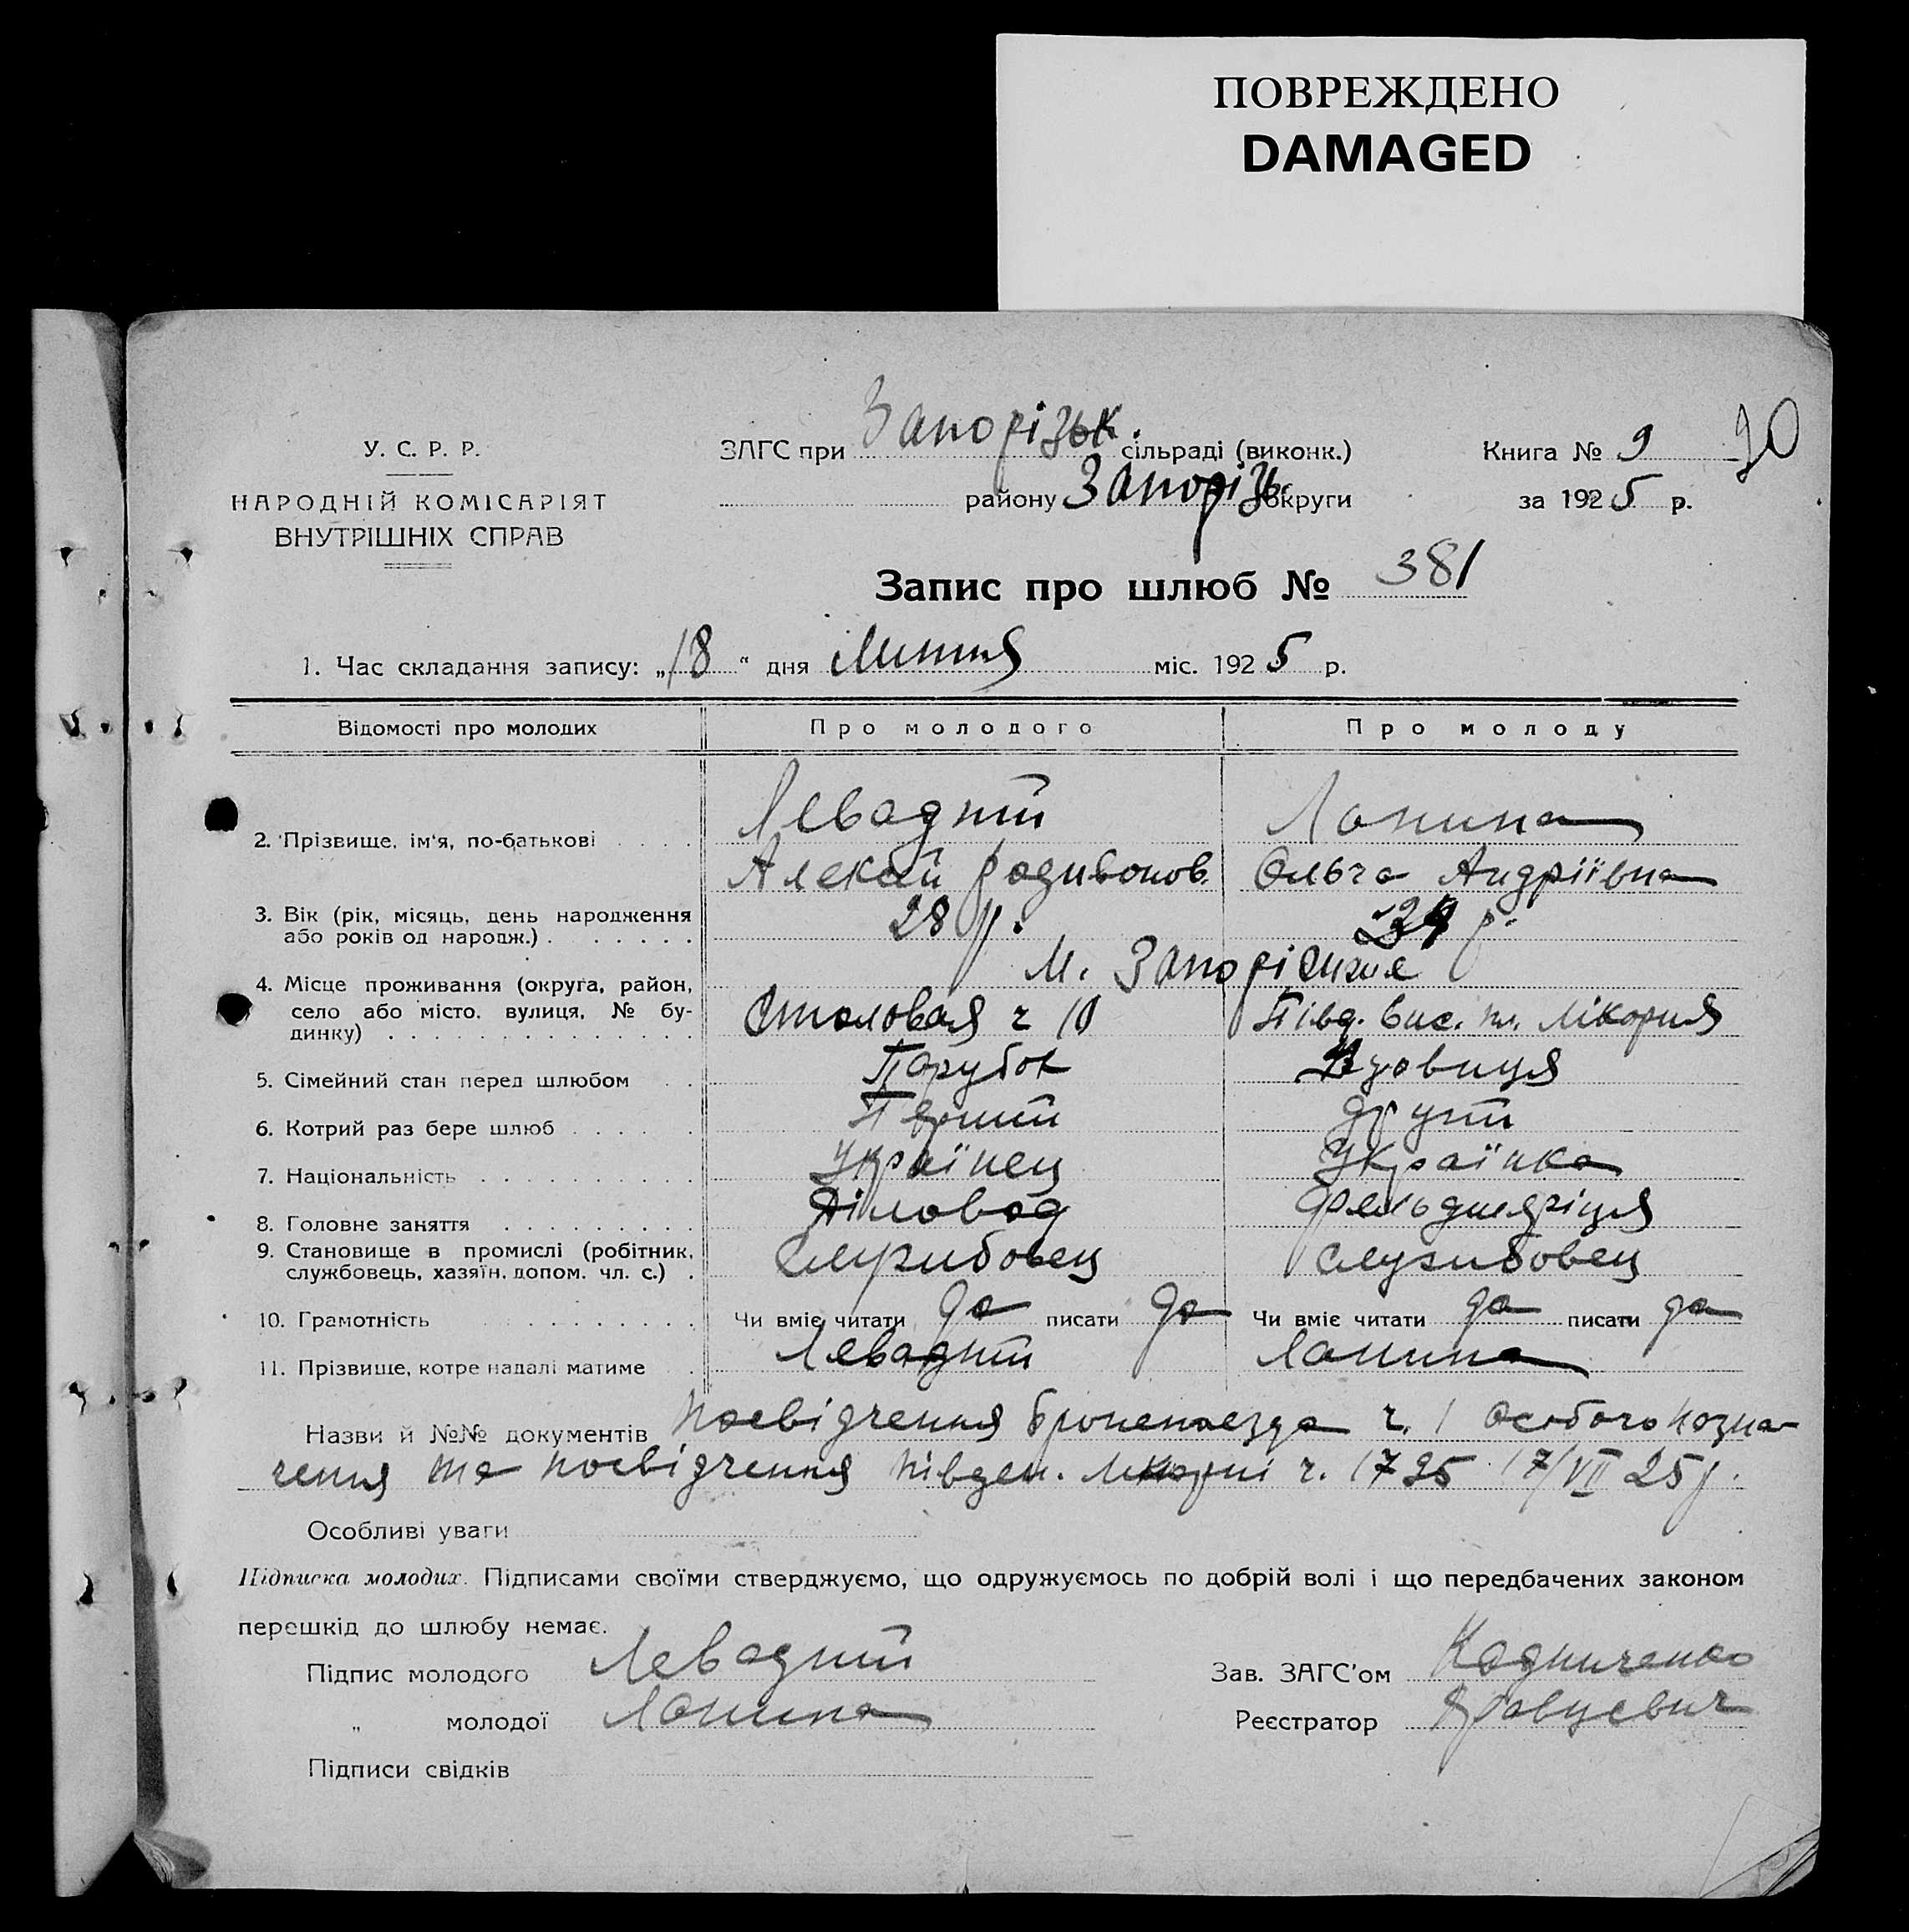 ПОВРЕЖДЕНО
DAMAGED
У. С. Р. Р.
НАРОДНІЙ КОМІСАРІЯТ
ВНУТРІШНІХ СПРАВ
ЗАГС при Запорізьк. сільраді (виконк.)
району Запорізь округи
Книга № 9
90
за 1925 р.
Запис про шлюб № 381
1. Час складання запису: „18" дня Липня міс. 1925 р.
Відомості про молодих Про молодого Про молоду
2. Прізвище, ім'я, по-батькові Левадній Лапина
Алексій Родивонов. Ольга Андріївна
3. Вік (рік, місяць, день народження або років од народж.) 28 р. 34 р.
4. Місце проживання (округа, район, село або місто, вулиця, № будинку) м. Запоріжжя
Столовая ч 10 Півд. вис. пл. Лікарня
5. Сімейний стан перед шлюбом Парубок Вдовиця
6. Котрий раз бере шлюб Перший другий
7. Національність Українец Українка
8. Головне заняття Діловод Фельдшеріця
9. Становище в промислі (робітник, службовець, хазяїн, допом. чл. с.) Службовец службовец
10. Грамотність Чи вміє читати да писати да Чи вміє читати да писати да
11. Прізвище, котре надалі матиме Левадній Лапина
Назви й №№ документів Посвідчення бронепоезда ч. 1 Особого назна-
чення та посвідчення Півден. Лікарні ч. 1795 17/VII 25 р.
Особливі уваги
Підписка молодих. Підписами своїми стверджуємо, що одружуємось по добрій волі і що передбачених законом
перешкід до шлюбу немає.
Підпис молодого Левадній
Зав. ЗАГС'ом
„ молодої Лапина
Реєстратор
Підписи свідків